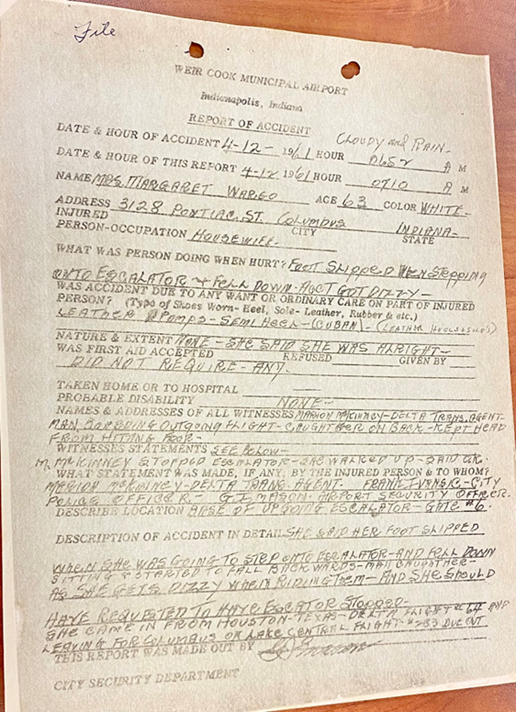 File
WEIR COOK MUNICIPAL AIRPORT
Indianapolis, Indiana
REPORT OF ACCIDENT
Cloudy and Rain-
DATE & HOUR OF ACCIDENT 4-12- 1961 HOUR 0652 A M
DATE & HOUR OF THIS REPORT 4-12 1961 HOUR 0710 A M
NAME MRS. MARGARET WARGO AGE 63 COLOR WHITE-
ADDRESS 3128 PONTIAC, ST. COLUMBUS INDIANA-
INJURED CITY STATE
PERSON-OCCUPATION HOUSEWIFE-
WHAT WAS PERSON DOING WHEN HURT? FOOT SLIPPED WHEN STEPPING
ONTO ESCALATOR & FELL DOWN-AGCT GOT DIZZY-
WAS ACCIDENT DUE TO ANY WANT OR ORDINARY CARE ON PART OF INJURED
PERSON? (Type of Shoes Worn- Heel, Sole- Leather, Rubber & etc.)
LEATHER PUMPS- SEMI HEEL-(CUBAN)- (LEATHER
NATURE & EXTENT NONE - SHE SAID SHE WAS ALRIGHT-
WAS FIRST AID ACCEPTED REFUSED GIVEN BY
DID NOT REQUIRE - ANY.
TAKEN HOME OR TO HOSPITAL
PROBABLE DISABILITY NONE-
NAMES & ADDRESSES OF ALL WITNESSES MARION MCKINNEY-DELTA TRANS. AGENT-
MAN, BORDING OUTGOING FLIGHT-CAUGHT HER ON BACK-KEPT HEAD
FROM HITING FLOOR-
WITNESSES STATEMENTS SEE BELOW-
M, MCKINNEY STOPED ESCALATOR-SHE WALKED UP-SAID OK.
WHAT STATEMENT WAS MADE, IF ANY, BY THE INJURED PERSON & TO WHOM?
MARION MCKINNEY-DELTA TRANS. AGENT. FRANK -CITY
POLICE OFFICER- G.I. MASON. AIRPORT SECURITY OFFICER.
DESCRIBE LOCATION BASE OF UPGOING ESCALATOR- GATE #6.
DESCRIPTION OF ACCIDENT IN DETAIL SHE SAID HER FOOT SLIPPED
WHEN SHE WAS GOING TO STEP ONTO ESCALATOR-AND FELL DOWN
SITTING & STARTED TO FALL BACKWARDS-MAN CAUGHT HER-
AS SHE GETS DIZZY WHEN RIDING THEM-AND SHE SHOULD
HAVE REQUESTED TO HAVE ESCATOR STOPPED-
SHE CAME IN FROM HOUSTON-TEXAS-DELTA FLIGHT #64 AND
LEAVING FOR COLUMBUS ON LAKE CENTRAL FLIGHT-#233 DUE OUT
THIS REPORT WAS MADE OUT BY
CITY SECURITY DEPARTMENT